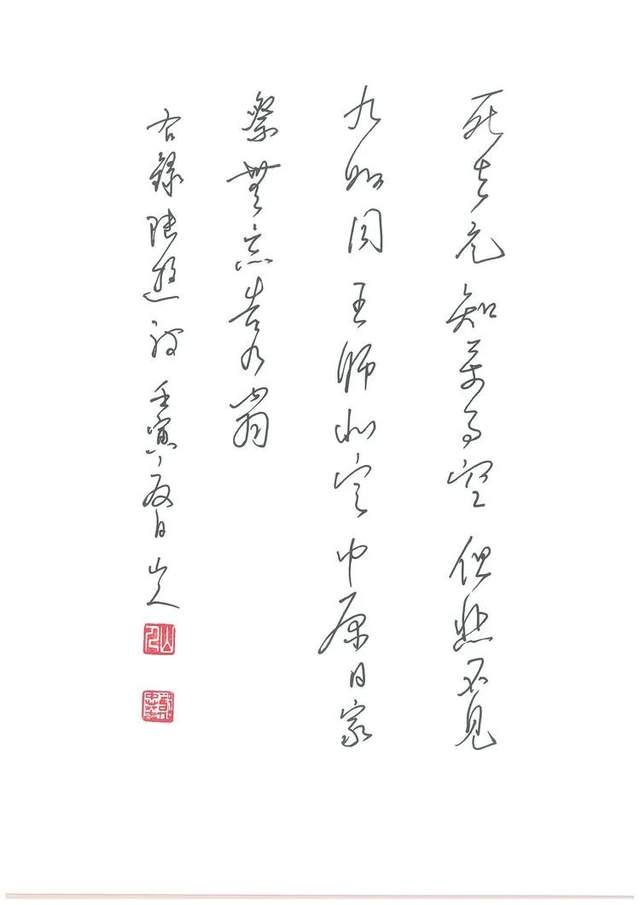 死去元知萬事空但悲不見
九州同王師北定中原日家
祭無忘告乃翁
右錄陸遊詩壬寅夏日山人